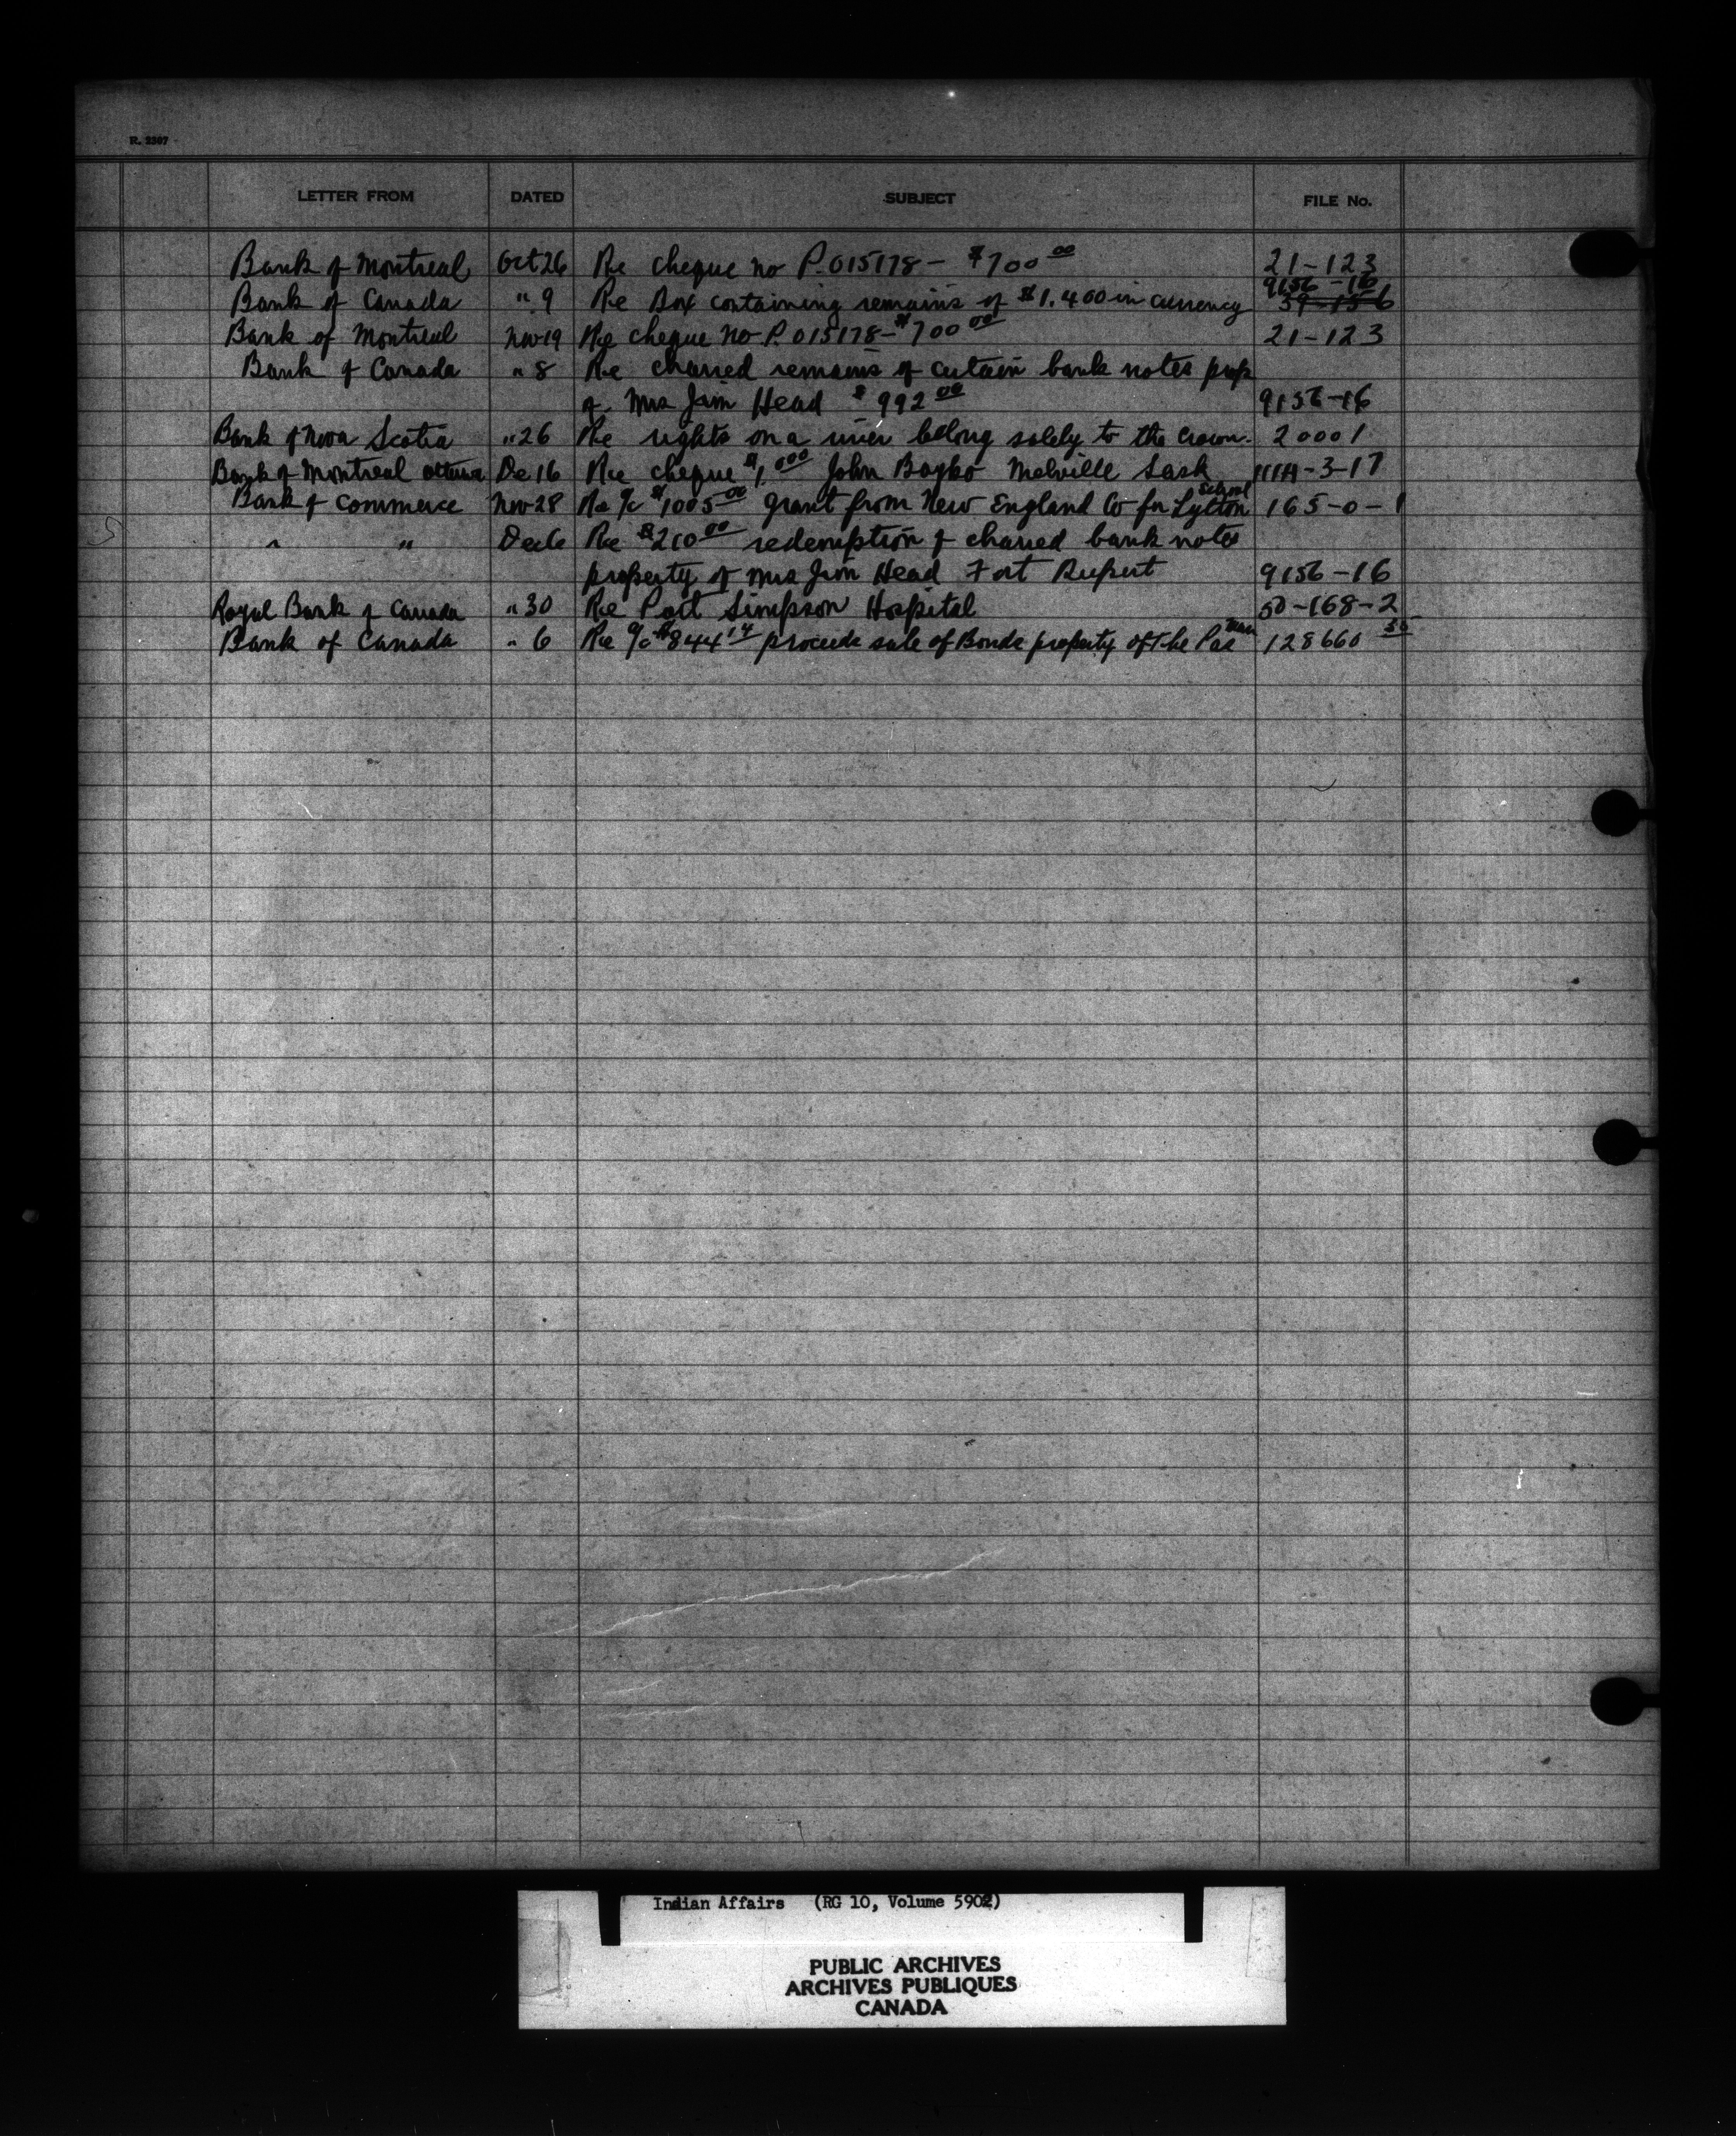 R. 2307
LETTER FROM DATED SUBJECT FILE No.
Bank of Montreal Oct 26 Re cheque no P.015178 - $700 00 21-123
9156-16
Bank of Canada " 9 Re Box containing remains of $1.400 in currency 39-156
Bank of Montreal Nov 19 Re cheque no P.015178 - $700 00 21-123
Bank of Canada " 8 Re charred remains of certain bank notes prop
of Mrs Jim Head $992 00 9156-16
Bank of Nova Scotia " 26 Re rights on a river belong solely to the Crown. 20001
Bank of Montreal Ottawa De 16 Re cheque $1.000 John Boyko Melville Sask 111A-3-17
School
Bank of Commerce Nov 28 Re a/c $1005 00 grant from New England Co for Lytton 165-0-1
" " Dec 6 Re $210 00 redemption of charred bank notes
property of Mrs Jim Head Fort Rupert 9156-16
Royal Bank of Canada " 30 Re Port Simpson Hospital 50-168-2
Man
Bank of Canada " 6 Re a/c $844 14 proceeds sale of Bonds property of The Pas 128660
Indian Affairs (RG 10, Volume 5902)
PUBLIC ARCHIVES
ARCHIVES PUBLIQUES
CANADA